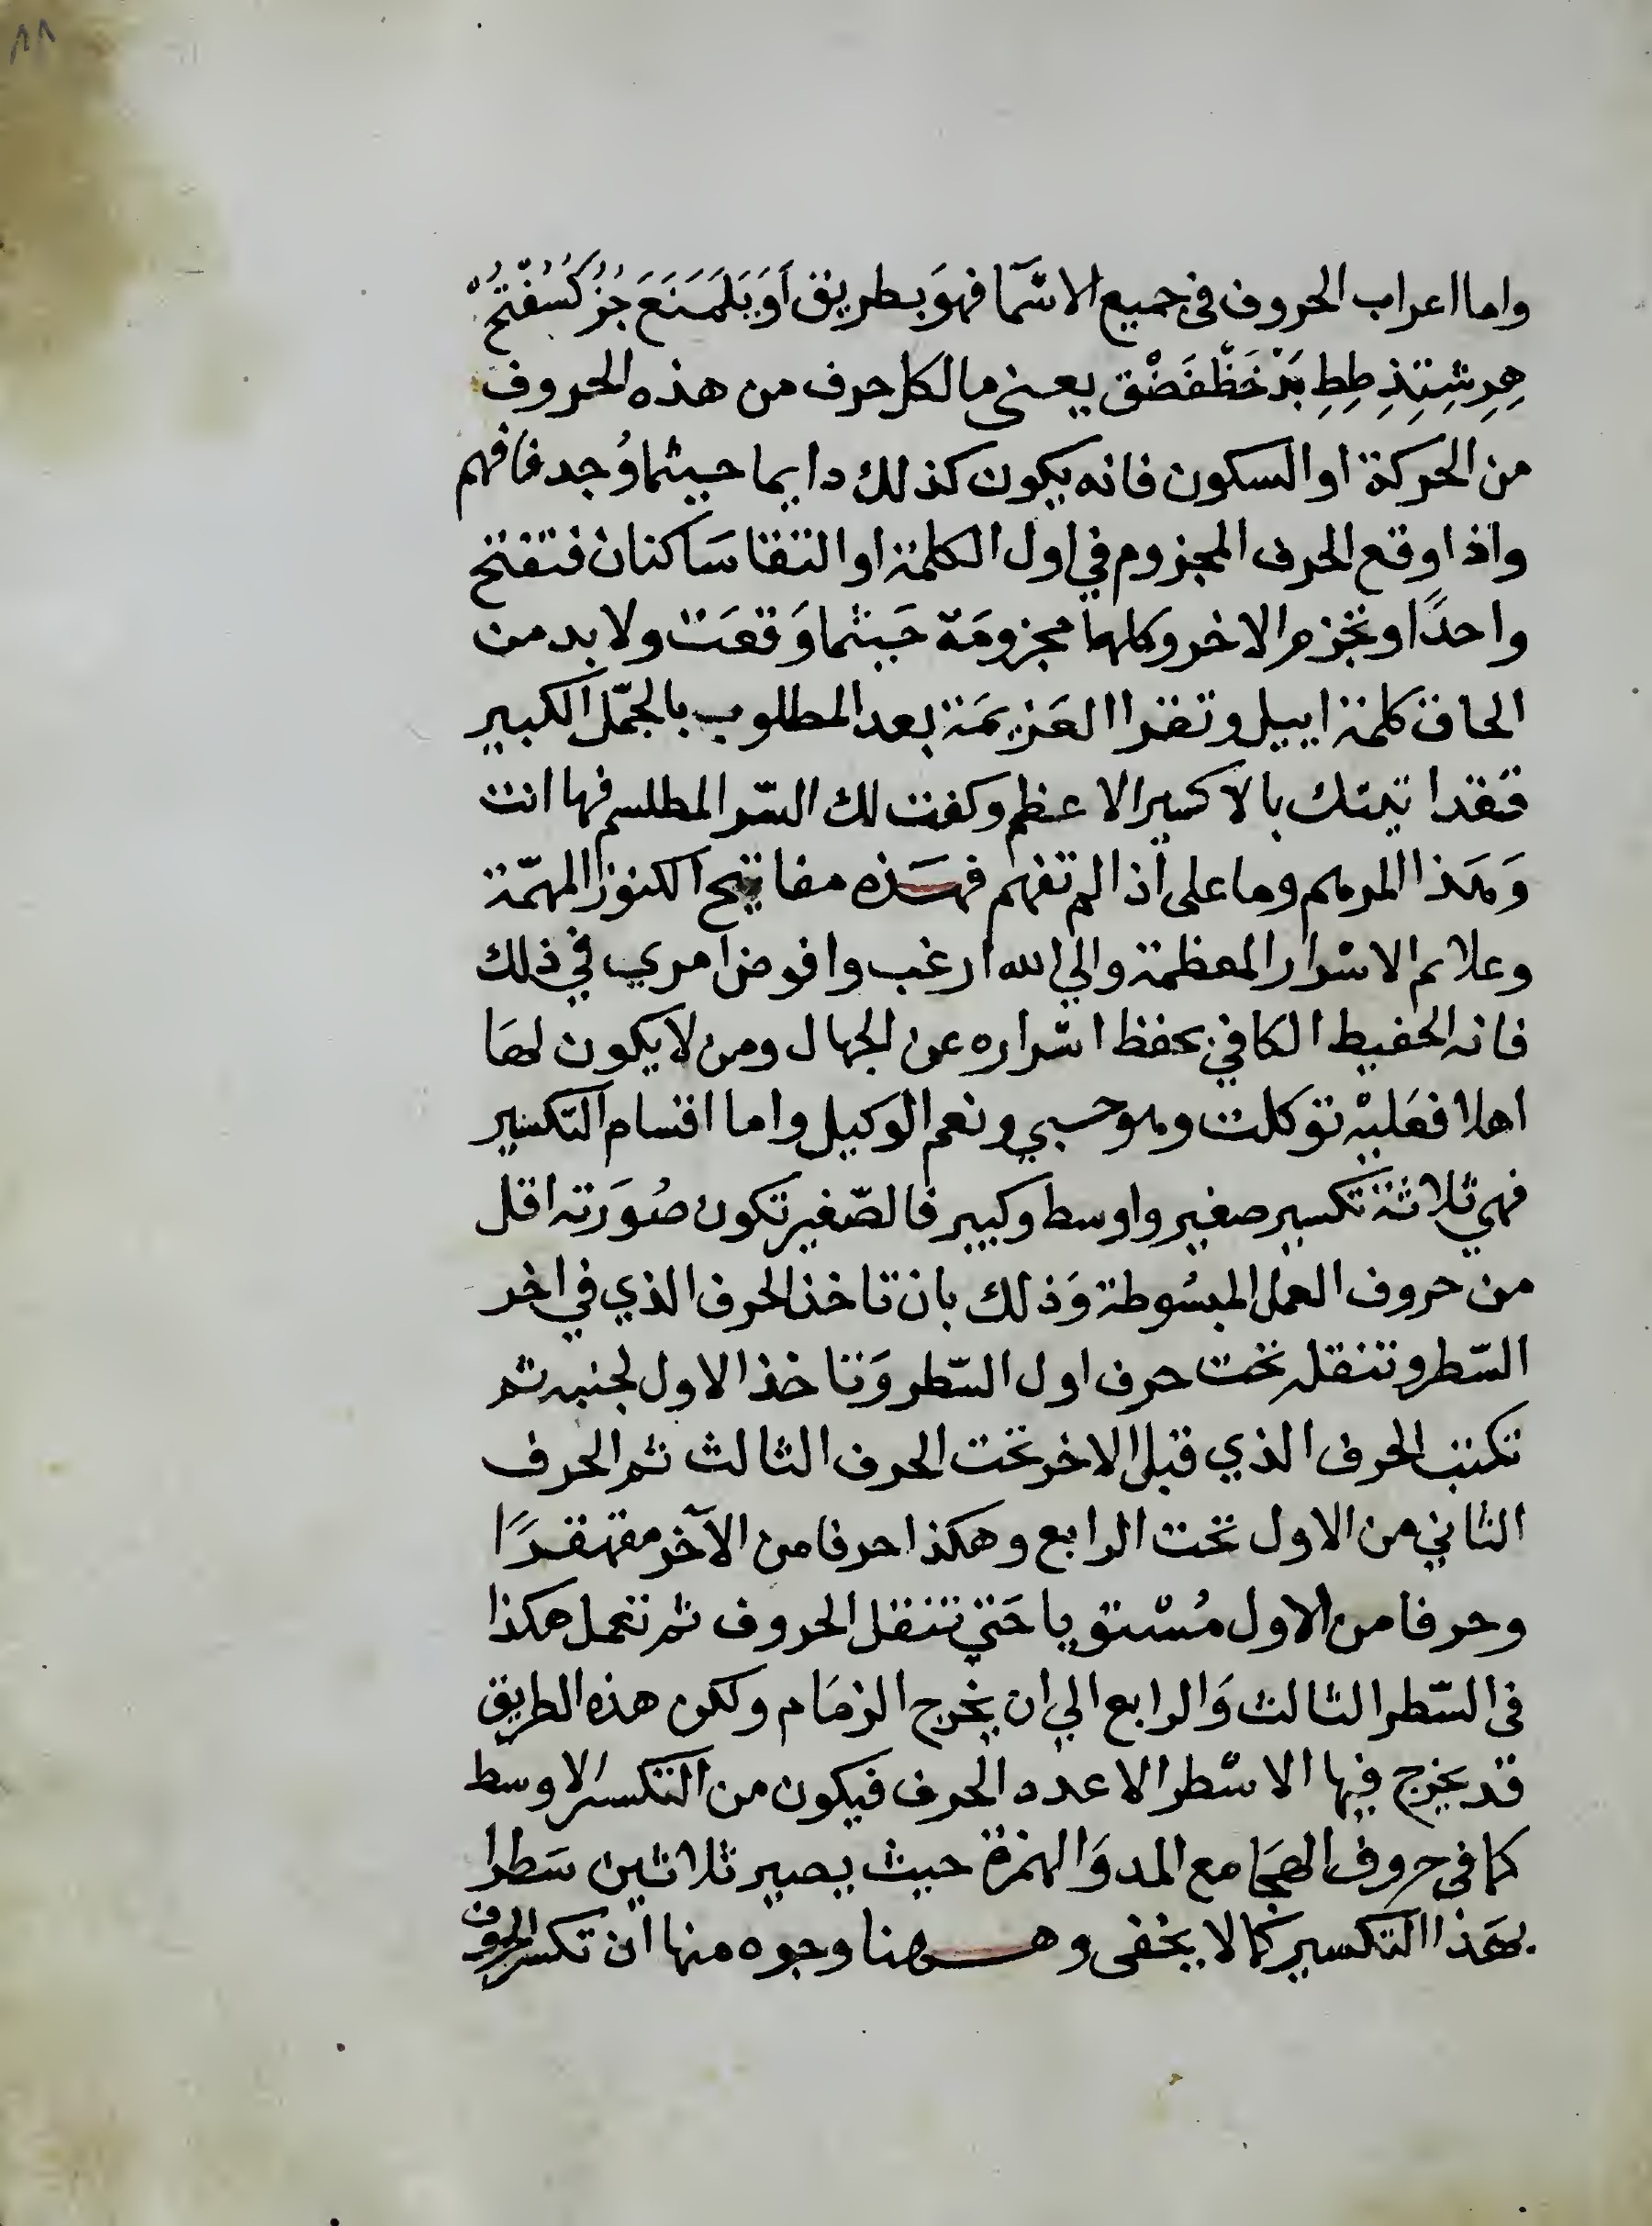 ٨٨
واما اعراب الحروف فى جميع الاسمآ فهوَ بطريق اَوَيَلَمَنَعَ جُزُكُسُفُتُحُ
هِرِشِتِذِطِطِ بَدْخَظْغَضْق يعنى ما لكل حرف من هذه الحروف
من الحركة او السكون فانه يكون كذلك دايما حيثما وُجد فافهم
واذا وقع الحرف المجزوم في اول الكلمة او التقا سَاكنان فتفتح
واحدًا وتجزم الاخر وكلها مجزومَة حَيثما وَقعَت ولا بد من
الحاق كلمة اييل وتقرا العَزيمَة بعد المطلوب بالجمّل الكبير
فقد اتيتك بالاكسير الاعظم وكفت لك السّر المطلسم فها انت
وَهَذا المرهم وما على اذا لم تفهم فهَذه مفاتيح الكنوز المهمّة
وعلايم الاسرار المعظمة والي الله ارغب وافوض امري في ذلك
فانه الحفيظ الكافي بحفظ اسراره عن الجهال ومن لا يكون لهَا
اهلا فعَليْه توكلت وهو حسبي ونعم الوكيل واما اقسام التكسير
فهي ثلاثة تكسير صغير واوسط وكبير فالصّغير تكون صُورَته اقل
من حروف العمل المبسُوطة وَذلك بان تاخذ الحرف الذي في اخر
السّطر وتنقله تحت حرف اول السّطر وَتاخذ الاول لجنبه ثم
تكتب الحرف الذي قبل الاخر تحت الحرف الثالث ثم الحرف
الثاني من الاول تحت الرابع وهكذا حرفا من الآخر مقهقرًا
وحرفا من الاول مُسْتويا حَتي تنقل الحروف ثم تعمل هكذا
فى السّطر الثالث وَالرابع الي ان يخرج الزمَام ولكن هذه الطريق
قد يخرج فيها الاسْطر الا عدد الحرف فيكون من التكسير الاوسط
كما فى حروف الهجَا مع المد وَالهمزة حيث يصير ثلاثين سَطرا
بهَذا التكسير كما لا يخفى وههنا وجوه منها ان تكسر الحروف